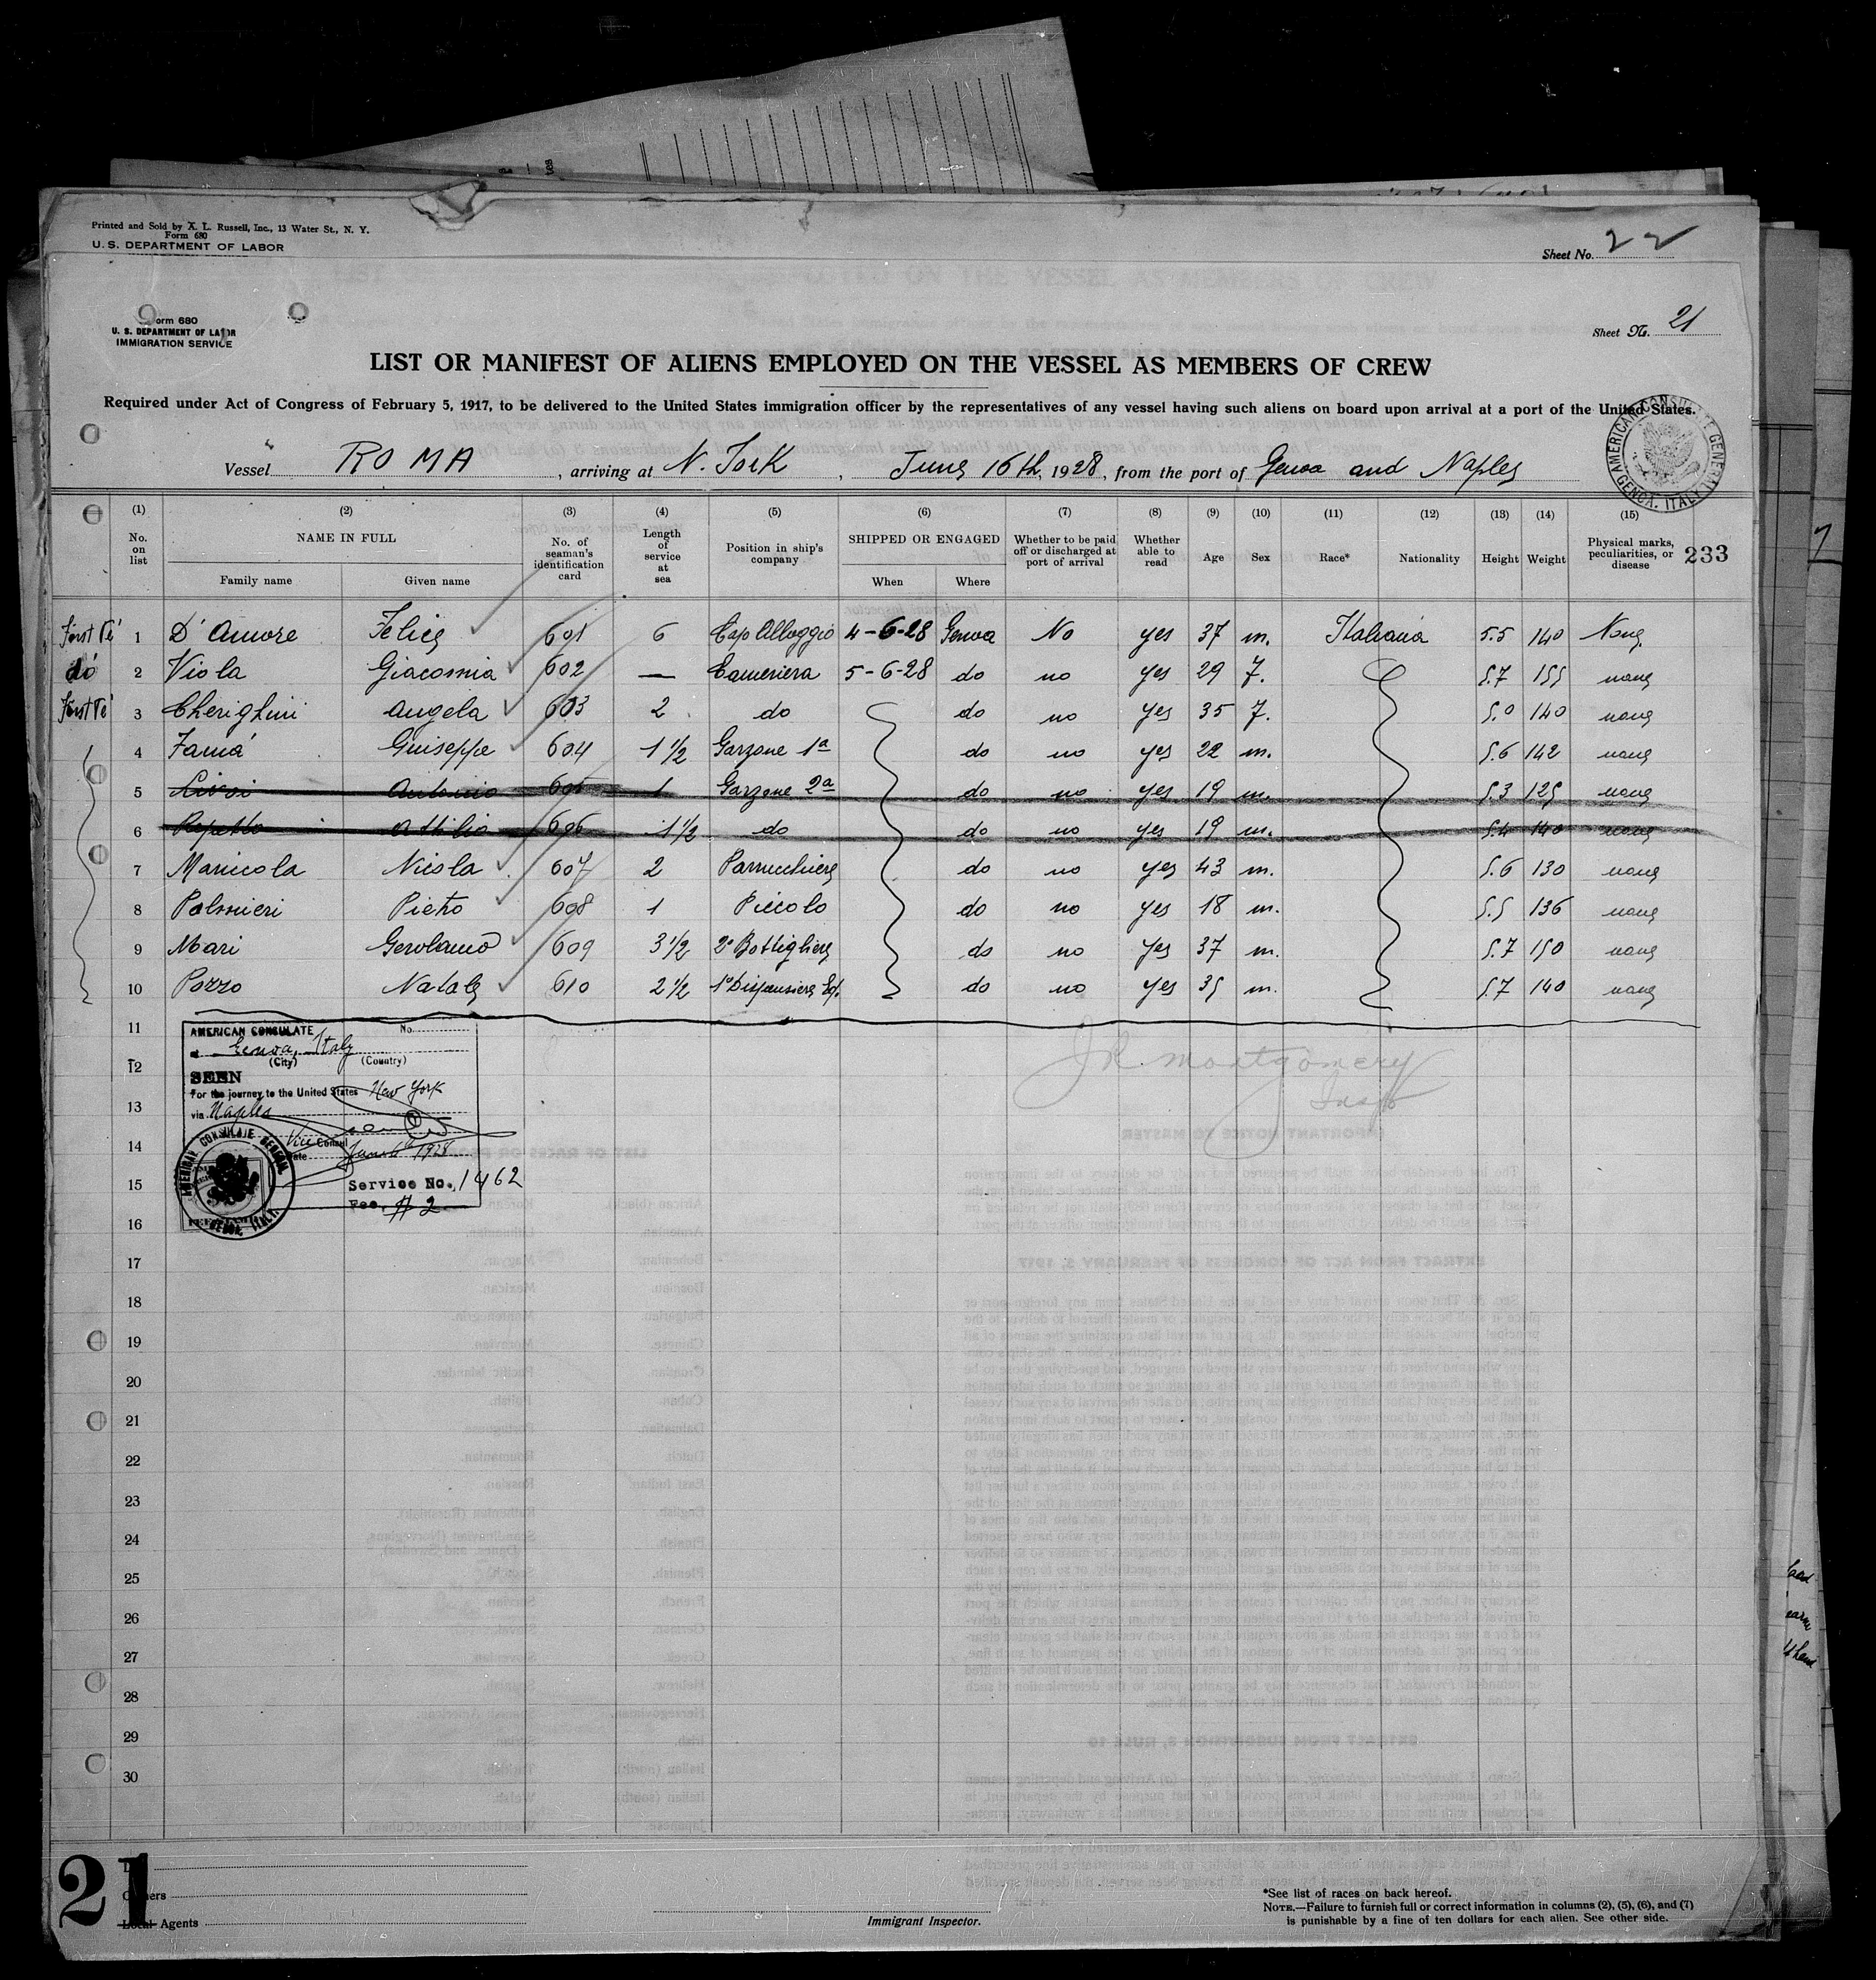 Printed and Sold by X. L. Russell, Inc., 13 Water St., N. Y.
Form 680
U. S. DEPARTMENT OF LABOR
Sheet No. 22
orm 680
U. S. DEPARTMENT OF LABOR
IMMIGRATION SERVICE
Sheet No. 21
LIST OR MANIFEST OF ALIENS EMPLOYED ON THE VESSEL AS MEMBERS OF CREW
Required under Act of Congress of February 5, 1917, to be delivered to the United States immigration officer by the representatives of any vessel having such aliens on board upon arrival at a port of the United States.
AMERICAN CONSULATE GENERAL GENOA. ITALY
Vessel ROMA, arriving at N. York, June 16th, 1928, from the port of Genoa and Naples
(1) (2) (3) (4) (5) (6) (7) (8) (9) (10) (11) (12) (13) (14) (15)
No. on list NAME IN FULL No. of seaman's identification card Length of service at sea Position in ship's company SHIPPED OR ENGAGED Whether to be paid off or discharged at port of arrival Whether able to read Age Sex Race* Nationality Height Weight Physical marks, peculiarities, or disease 233
Family name Given name When Where
1 D'Amore Felice 601 6 Cap Alloggio 4-6-28 Genoa No yes 37 m. Italiana 5.5 140 None
do 2 Viola Giacomia 602 — Cameriera 5-6-28 do no yes 29 F. 5.7 155 none
3 Cherighini Angela 603 2 do do no yes 35 F. 5.0 140 none
4 Famá Guiseppe 604 1 1/2 Garzone 1a do no yes 22 m. 5.6 142 none
5 Antonio 605 1 Garzone 2a do no yes 19 m. 5.3 125 none
6 Repetto Attilio 606 1 1/2 do do no yes 19 m. 5.4 140 none
7 Manicola Nicola 607 2 Parrucchiere do no yes 43 m. 5.6 130 none
8 Palmieri Pietro 608 1 Piccolo do no yes 18 m. 5.5 136 none
9 Mari Gerolamo 609 3 1/2 2° Bottigliere do no yes 37 m. 5.7 150 none
10 Pozzo Natale 610 2 1/2 1° Dispensiere do no yes 35 m. 5.7 140 none
11
AMERICAN CONSULATE No.
at Genoa, Italy
(City) (Country)
12
SEEN
For the journey to the United States New York
13
via Naples
14
Vice Consul
Date June 6th 1928
15
Service No. 1462
Fee. # 2
16
AMERICAN CONSULATE GENERAL GENOA, ITALY
JR. Montgomery
Insp
17
18
19
20
21
22
23
24
25
26
27
28
29
30
21
Owners
Local Agents
Immigrant Inspector.
*See list of races on back hereof.
NOTE.—Failure to furnish full or correct information in columns (2), (5), (6), and (7)
is punishable by a fine of ten dollars for each alien. See other side.